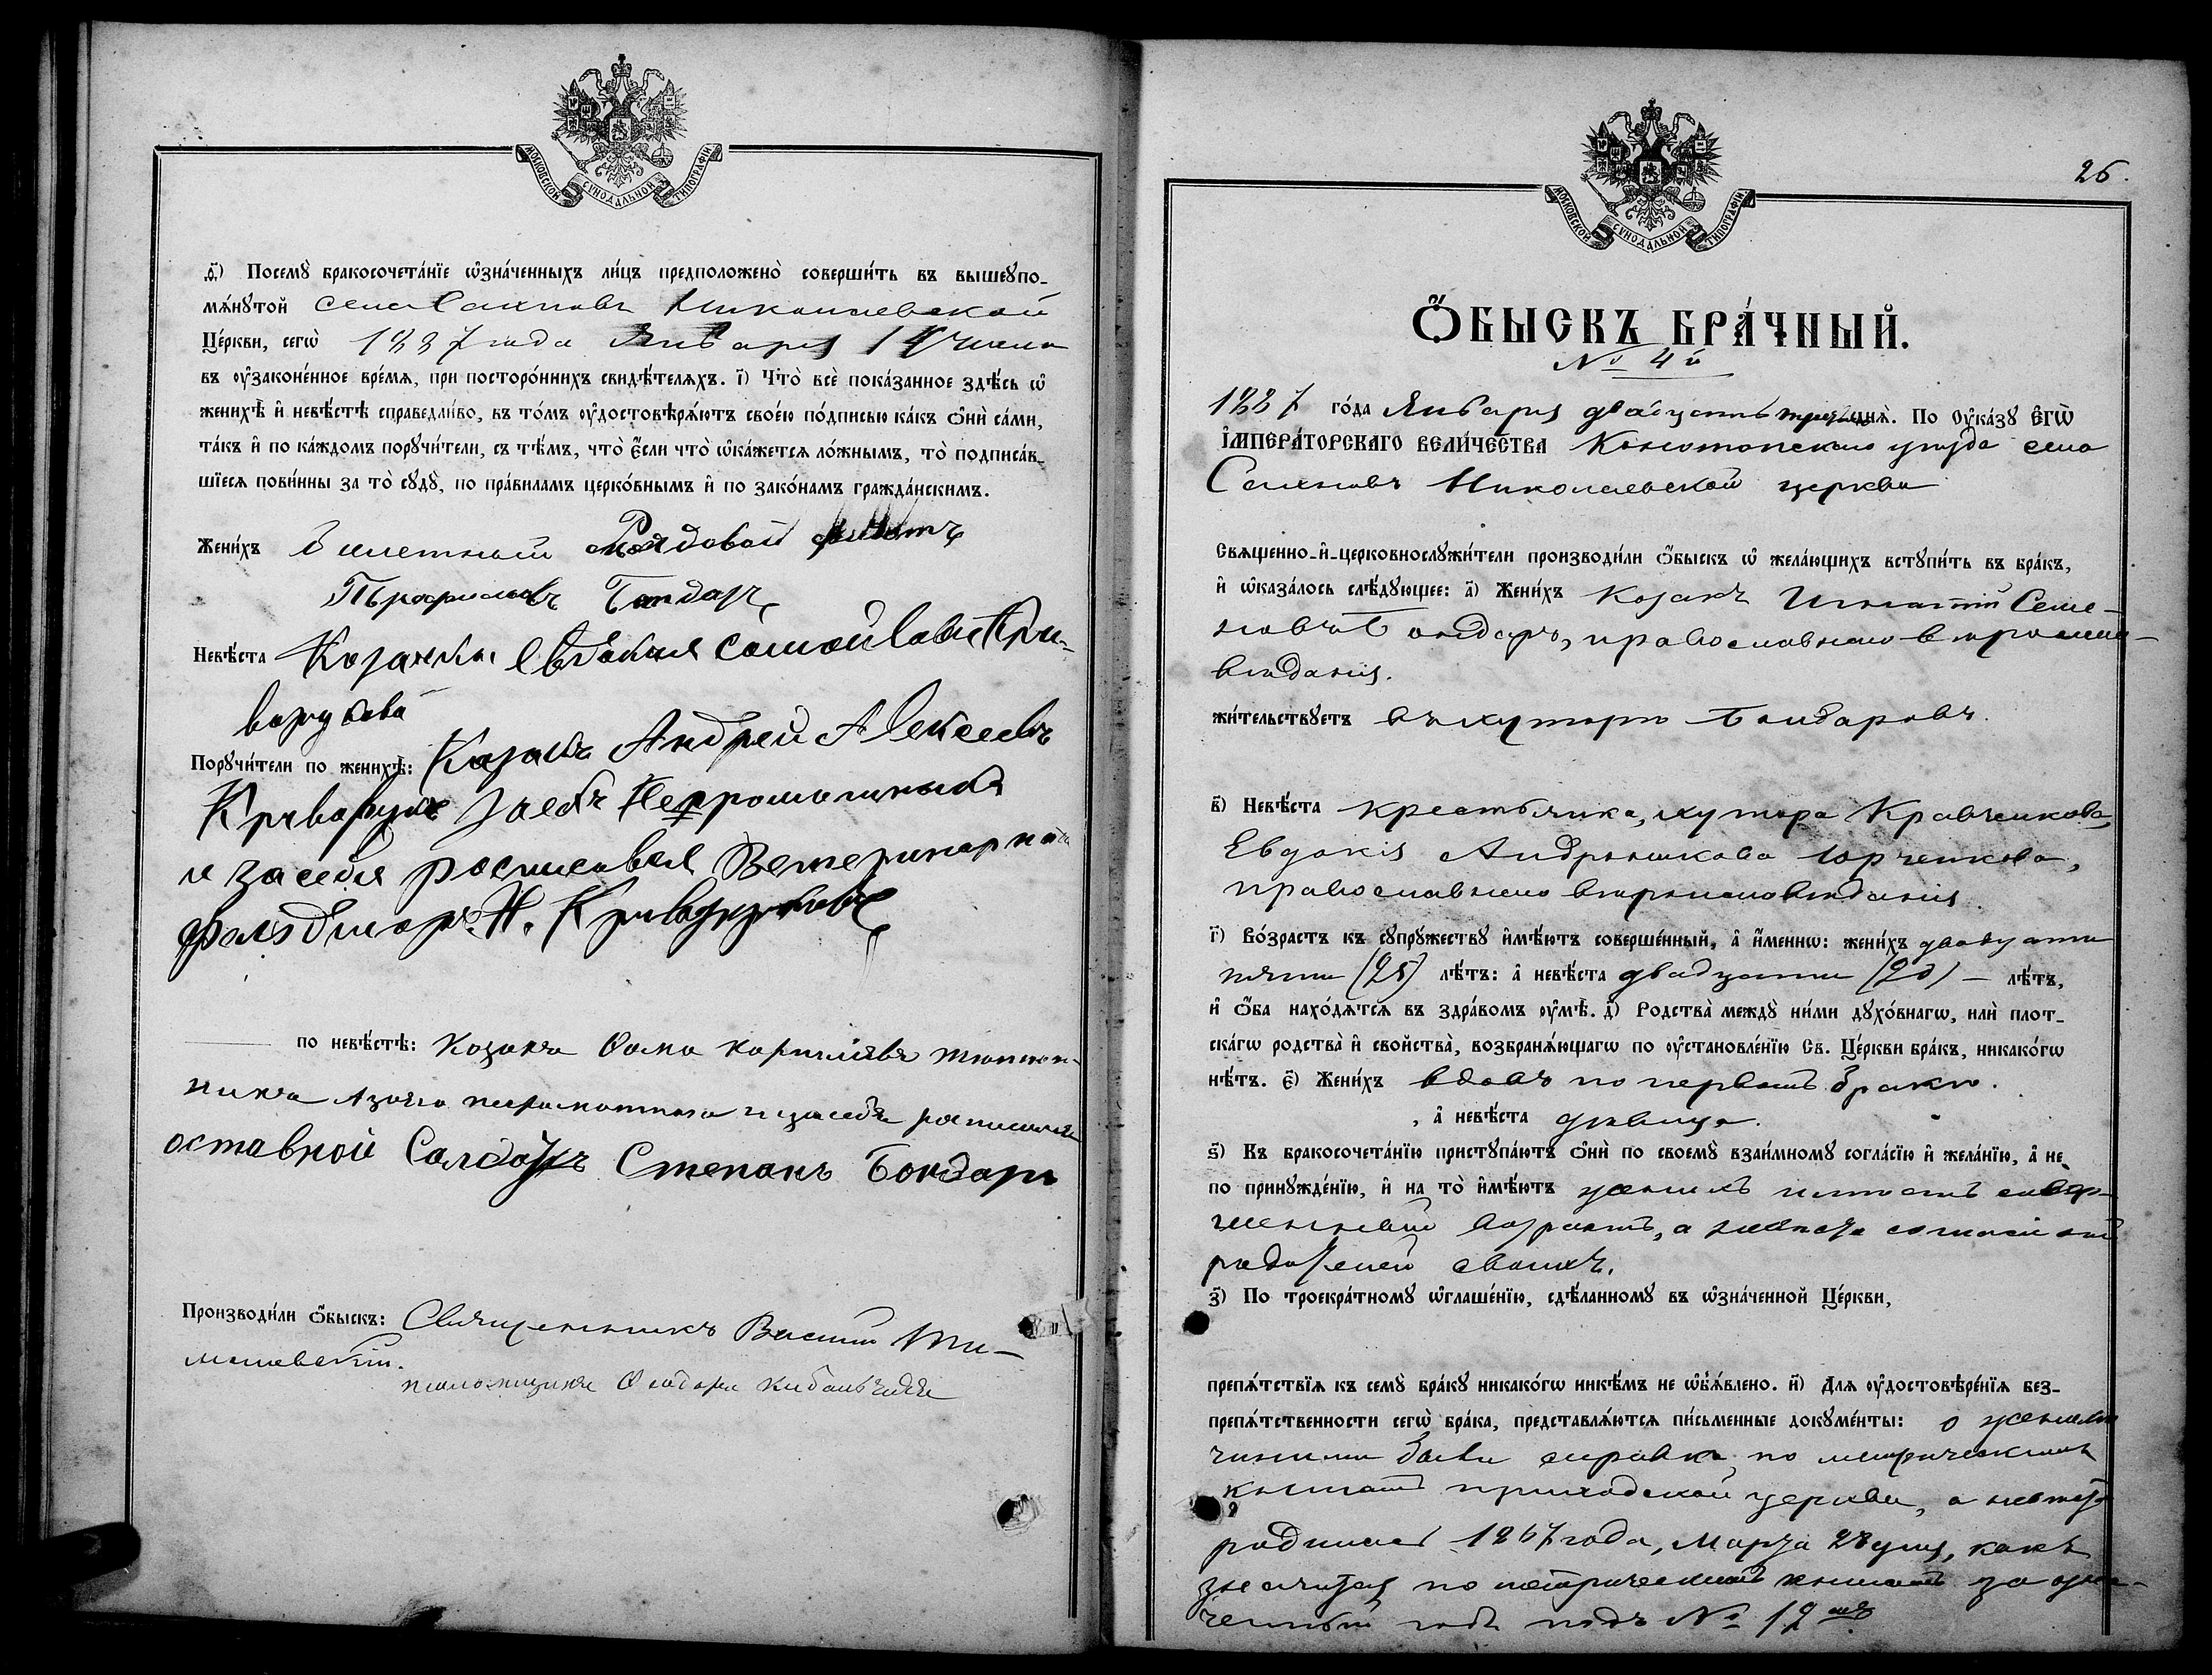 МОСКОВСКОЙ СѴНОДАЛЬНОЙ ТИПОГРАФІИ
ѳ҃) Посемꙋ̀ бракосочета́нїе ѡ҆зна́ченныхъ ли́цъ предположено̀ соверши́ть въ вышеꙋпо-
мѧ́нꙋтой села Николаевской
Це́ркви, сегѡ̀ 1887 года Января 19 числа
въ ᲂу҆зако́ненное вре́мѧ, при посторо́ннихъ свидѣ́телѧхъ. і҃) Что̀ всѐ пока́занное здѣ́сь ѡ҆
женихѣ̀ и҆ невѣ́стѣ справедли́во, въ то́мъ ᲂу҆достовѣрѧ́ютъ свое́ю по́дписью ка́къ ѻ҆нѝ са́ми,
та́къ и҆ по ка́ждомъ порꙋчи́тели, съ тѣ́мъ, что̀ є҆́сли что̀ ѡ҆ка́жетсѧ ло́жнымъ, то̀ подписа́в-
шїесѧ пови́нны за то̀ сꙋдꙋ̀, по пра́виламъ церко́внымъ и҆ по зако́намъ гражда́нскимъ.
Жени́хъ билетный Рядовой
Бондарь
Невѣ́ста Козачка Евдокия Самойлова Кри-
ворукова
Порꙋчи́тели по женихѣ̀: Козакъ Андрей Алексеевъ
и засебя росписовался Ветеринарной
фельдшеръ Н. Криворучковъ
по невѣ́стѣ: Козакъ Фома
неграмотного и засебя
оставной Салдатъ Степанъ Бондарь
Производи́ли ѻ҆́быскъ: Священникъ Василий
псаломщикъ Ѳеодоръ
26.
МОСКОВСКОЙ СѴНОДАЛЬНОЙ ТИПОГРАФІИ
Ѻ҆БЫСКЪ БРА́ЧНЫЙ.
№ 4й
1887 го́да Января двадцать третьяго днѧ̀. По Оу҆ка́зꙋ Є҆гѡ̀
І҆мпера́торскагѡ вели́чества Конотопскаго уезда села
Николаевской церкви
Свѧщенно-и҆-церковнослꙋжи́тели производи́ли ѻ҆́быскъ ѡ҆ жела́ющихъ вступи́ть въ бра́къ,
и҆ ѡ҆каза́лось слѣ́дꙋющее: а҃) Жени́хъ Козакъ Игнатій Семе-
новъ Бондарь, православнаго вѣроиспо-
вѣданія.
жи́тельствꙋетъ въ хуторѣ Бондаровъ.
в҃) Невѣ́ста крестьянка, хутора Кравченкова,
Евдокія Юрченкова,
православнаго вѣроисповѣданія.
г҃) Во́зрастъ къ сꙋпрꙋ́жествꙋ и҆мѣ́ютъ соверше́нный, а҆ и҆́меннѡ: жени́хъ двадцати
пяти (25) лѣ́тъ: а҆ невѣ́ста двадцати (20) — лѣ́тъ,
и҆ ѻ҆́ба нахо́дѧтсѧ въ здра́вомъ ᲂу҆мѣ̀. д҃) Родства̀ междꙋ̀ ни́ми дꙋхо́внагѡ, илѝ плот-
ска́гѡ родства̀ и҆ свойства̀, возбранѧ́ющагѡ по ᲂу҆становле́нїю Св. Це́ркви бра́къ, никако́гѡ
нѣ́тъ. є҃) Жени́хъ вдовъ по первомъ бракѣ.
, а҆ невѣ́ста дѣвица.
ѕ҃) Къ бракосочета́нїю пристꙋпа́ютъ ѻ҆нѝ по своемꙋ̀ взаи́мномꙋ согла́сїю и҆ жела́нїю, а҆ не
по принꙋжде́нїю, и҆ на то̀ и҆мѣ́ютъ женихъ совер-
шенный возрастъ, а невѣста
родителей своихъ.
з҃) По троекра́тномꙋ ѡ҆глаше́нїю, сдѣ́ланномꙋ въ ѡ҆зна́ченной Це́ркви,
препѧ́тствїѧ къ семꙋ̀ бра́кꙋ никако́гѡ никѣ́мъ не ѡ҆б̾ѧ́влено. и҃) Для ᲂу҆достовѣре́нїѧ без-
препѧ́тственности сегѡ̀ бра́ка, представлѧ́ютсѧ пи́сьменные докꙋме́нты: о женихѣ
справка по метрическимъ
книгамъ приходской церкви, а невѣста
родилась 1867 года, Марта 28 дня, какъ
значится по метрическимъ книгамъ за озна-
ченный годъ подъ № 12